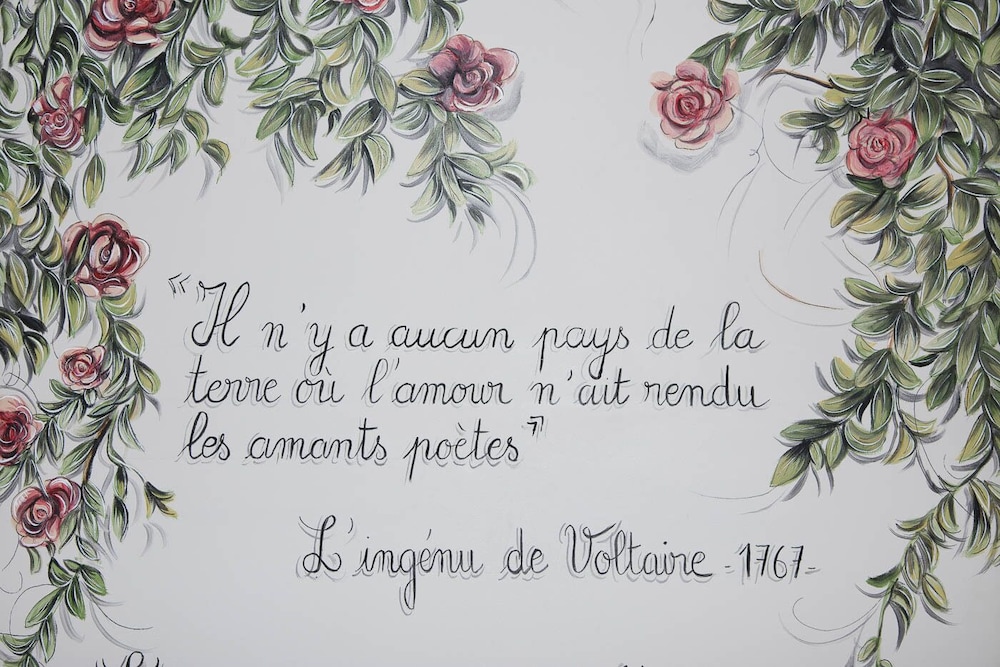 "Il n'y a aucun pays de la
terre où l'amour n'ait rendu
les amants poètes"
L'ingénu de Voltaire - 1767-